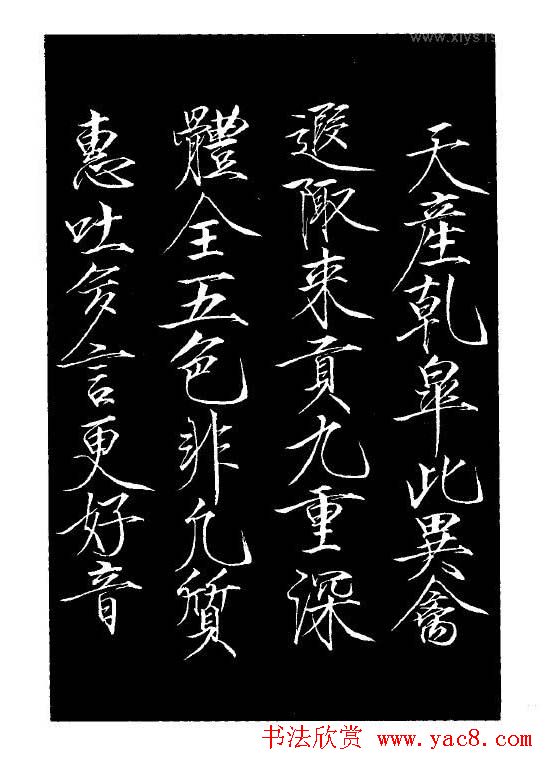 天產乹皐此異禽
遐陬来貢九重深
體全五色非凢質
惠吐多言更好音
书法欣赏 www.yac8.com